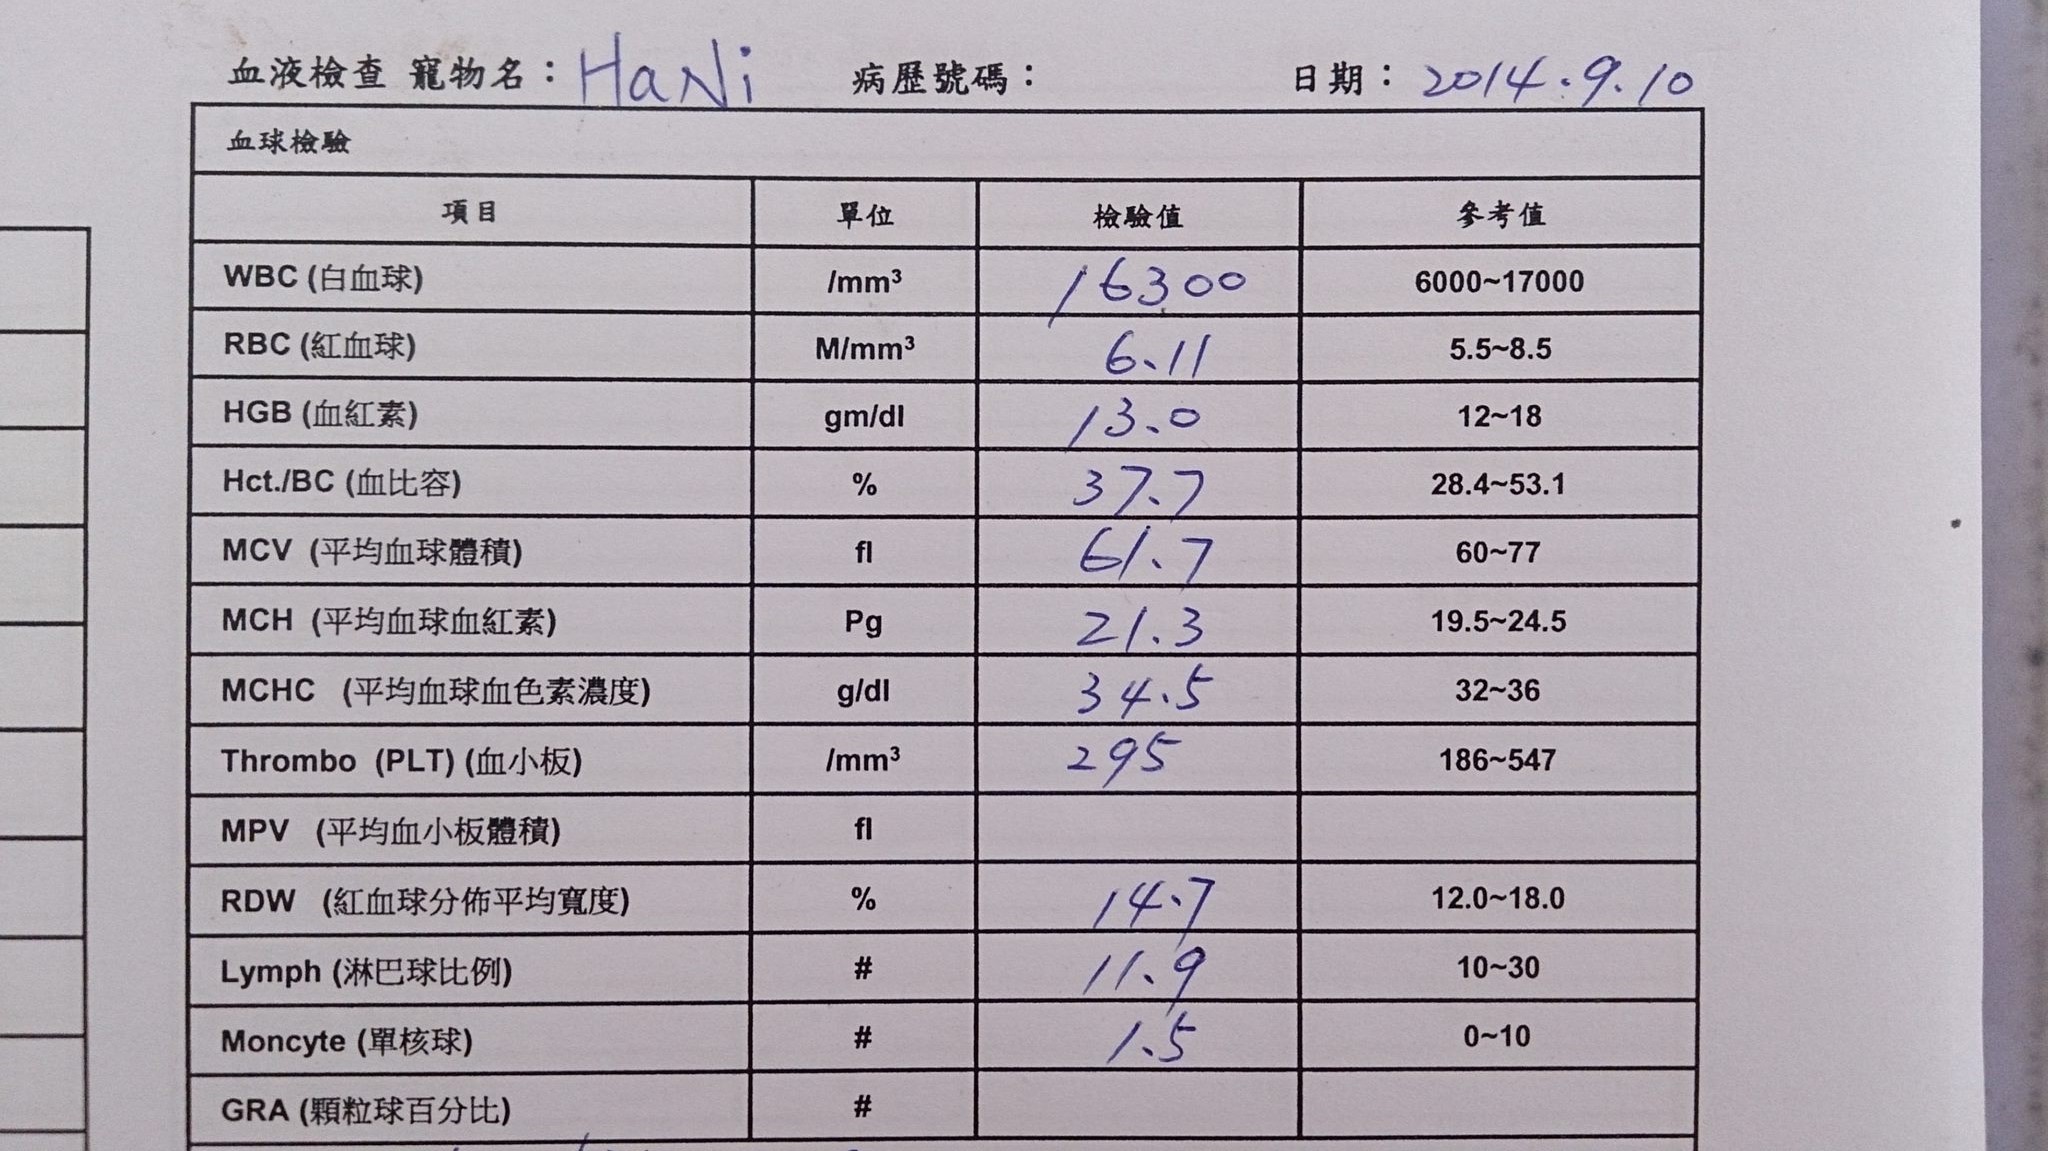 血液檢查 寵物名：HaNi 病歷號碼： 日期：2014.9.10
血球檢驗
項目 單位 檢驗值 參考值
WBC (白血球) /mm³ 16300 6000~17000
RBC (紅血球) M/mm³ 6.11 5.5~8.5
HGB (血紅素) gm/dl 13.0 12~18
Hct./BC (血比容) % 37.7 28.4~53.1
MCV (平均血球體積) fl 61.7 60~77
MCH (平均血球血紅素) Pg 21.3 19.5~24.5
MCHC (平均血球血色素濃度) g/dl 34.5 32~36
Thrombo (PLT) (血小板) /mm³ 295 186~547
MPV (平均血小板體積) fl
RDW (紅血球分佈平均寬度) % 14.7 12.0~18.0
Lymph (淋巴球比例) # 11.9 10~30
Moncyte (單核球) # 1.5 0~10
GRA (顆粒球百分比) #